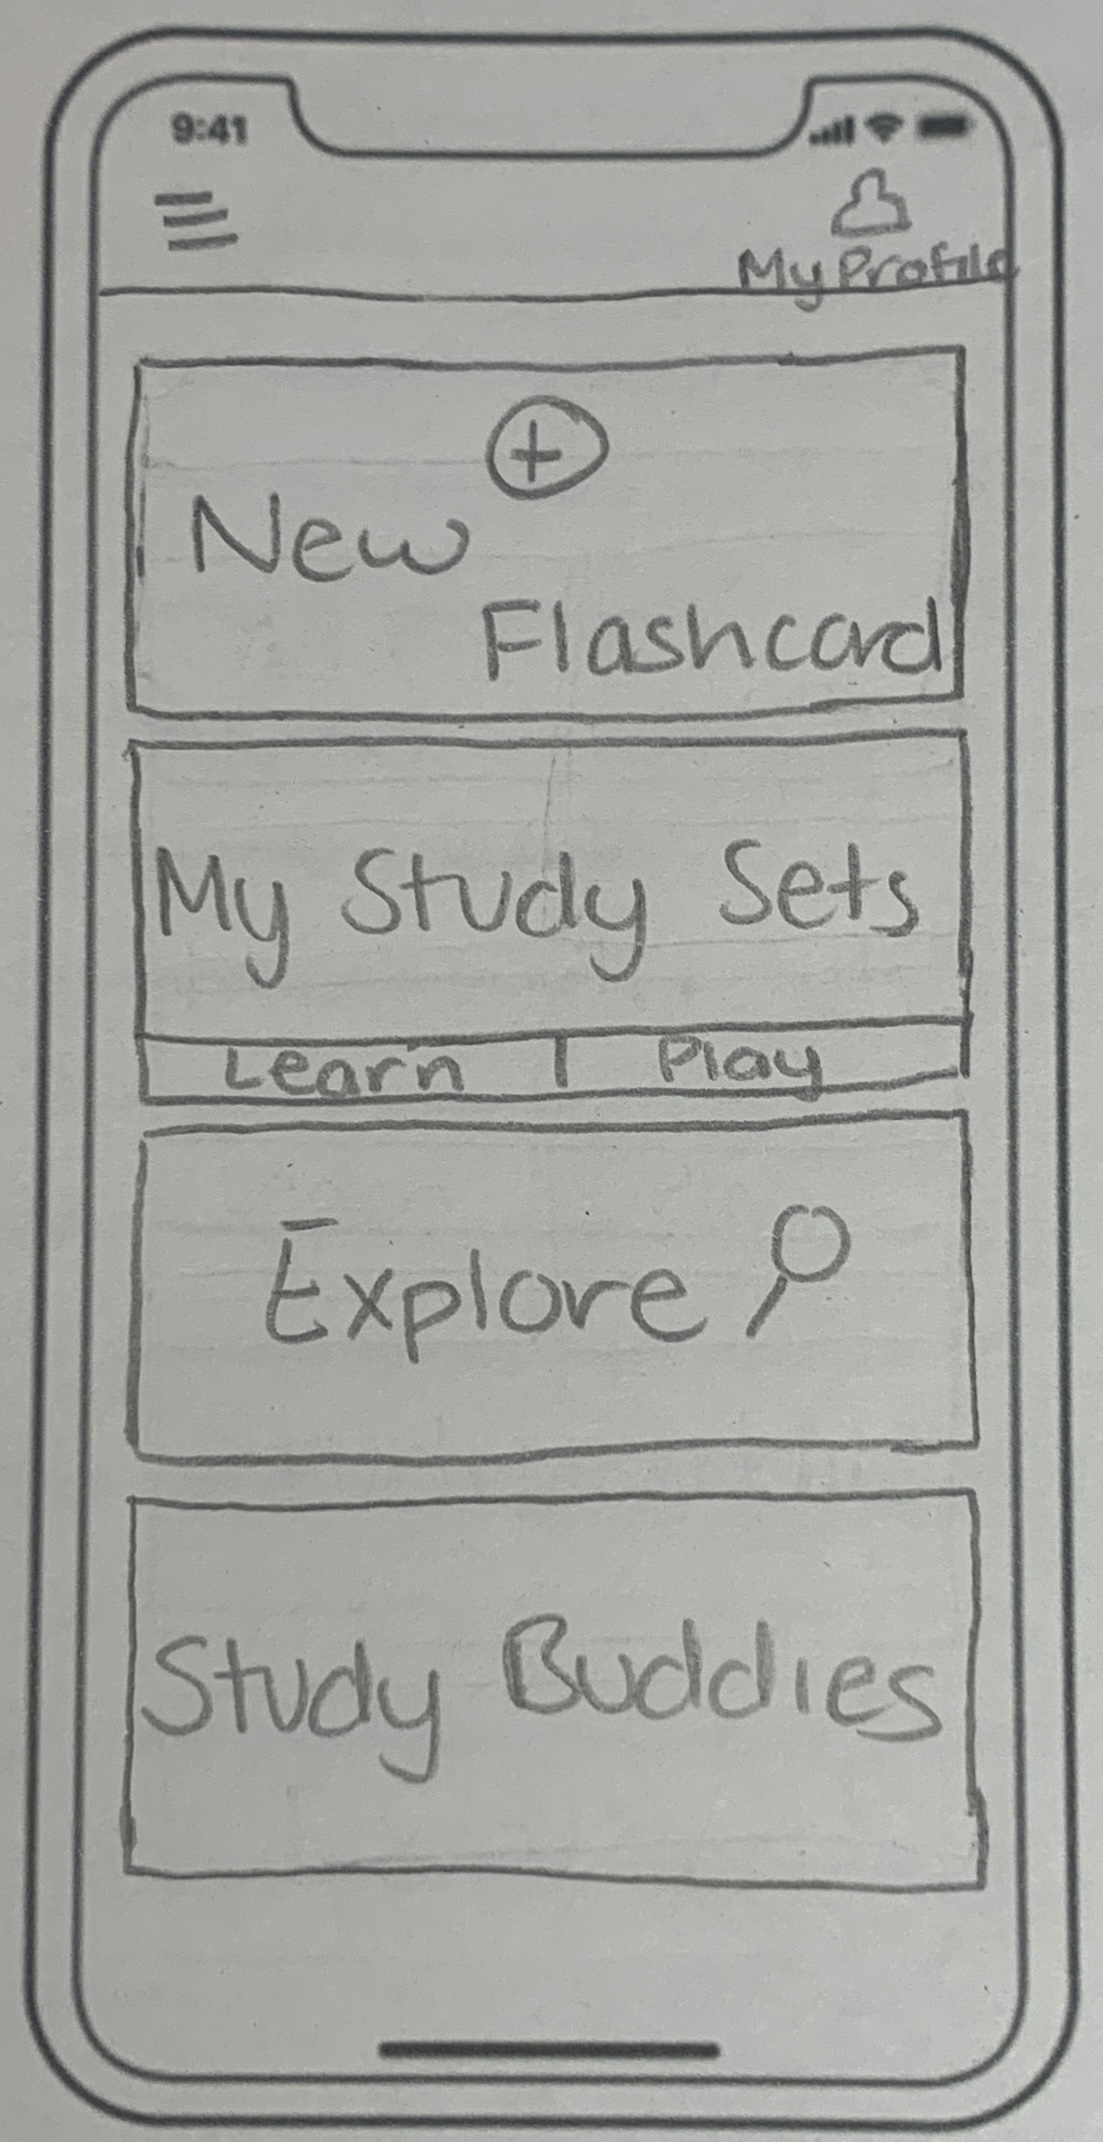 9:41
My Profile
New
Flashcard
My Study Sets
Learn | Play
Explore
Study Buddies